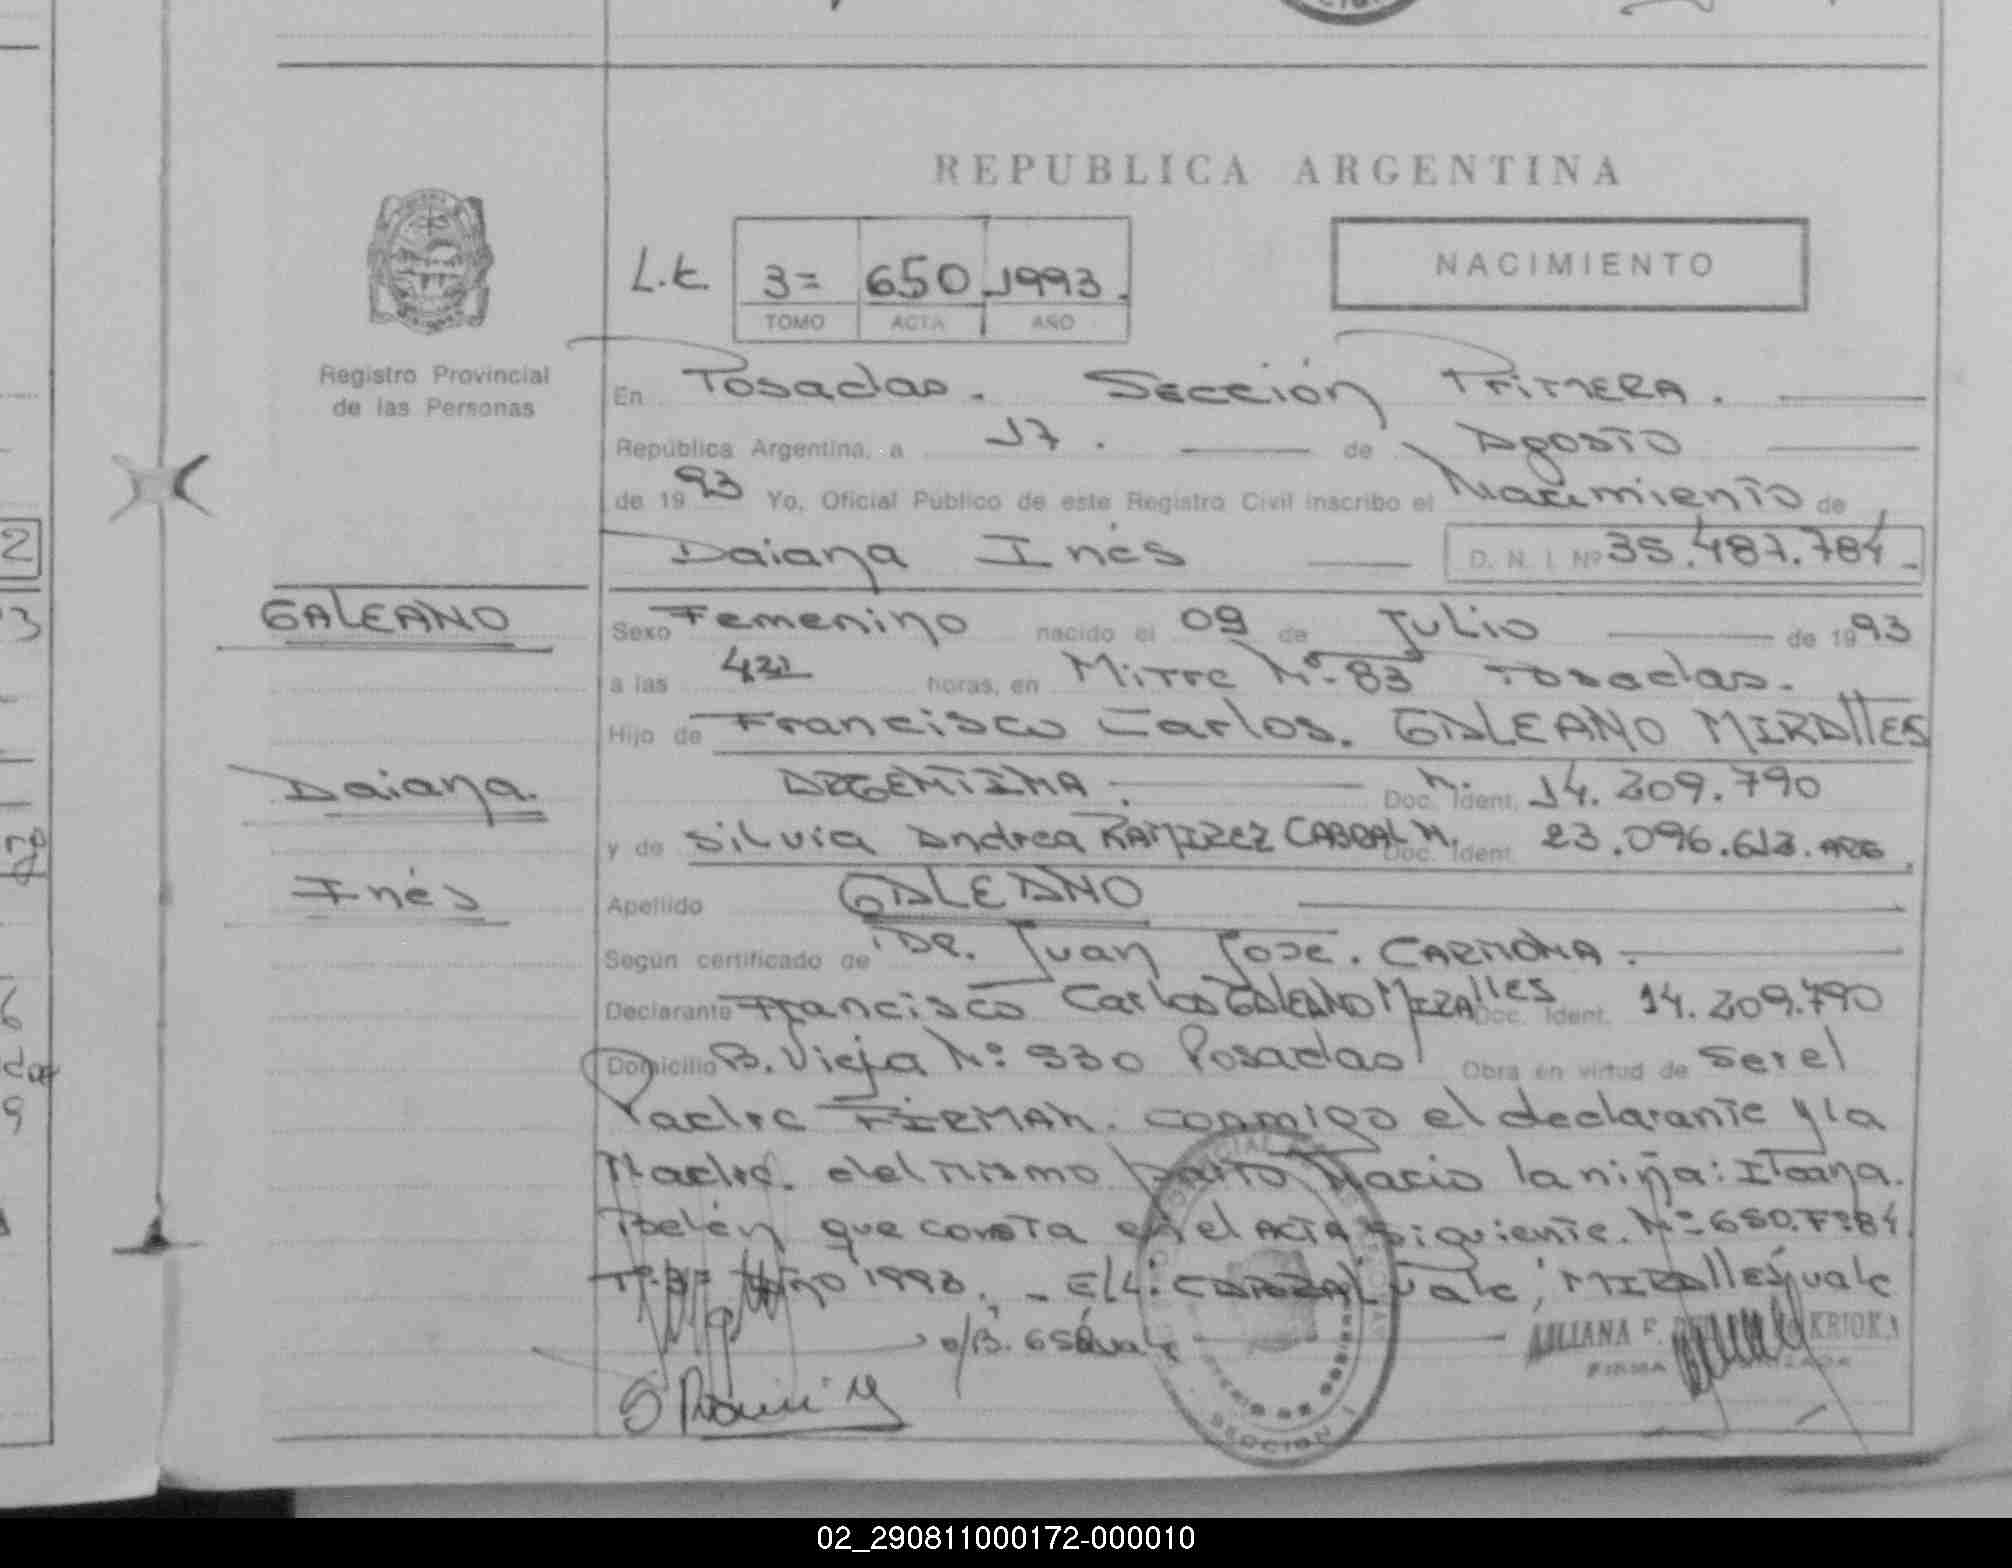 REPUBLICA ARGENTINA
NACIMIENTO
L.k. 3= 650 1993.
TOMO ACTA AÑO
Registro Provincial
de las Personas
En Posadas. Sección Primera.
República Argentina, a 17. de Agosto
de 1993 Yo, Oficial Público de este Registro Civil inscribo el Nacimiento de
Daiana Inés D. N. I. Nº 35.487.784.
GALEANO
Sexo Femenino nacido el 09 de Julio de 1993
a las horas, en Mitre Nº 83 Posadas.
Hijo de Francisco Carlos. GALEANO MIRALLES
Daiana.
ARGENTINA. Doc. Ident. 14.209.790
y de Silvia Andrea RAMIREZ CABRAL Doc. Ident. 23.096.613. ARG.
Inés
Apellido GALEANO
Según certificado de DR. Juan José. CARMONA.
Declarante Francisco Carlos GALEANO MIRALLES Doc. Ident. 14.209.790
Domicilio B. Vieja Nº 930 Posadas Obra en virtud de ser el
Padre FIRMAN. conmigo el declarante y la
Madre. del mismo parto Nacio la niña: Itaana.
Belén que consta en el ACTA siguiente. Nº 650. Fº 84
Tº 3= Año 1993. - E/L: CABRAL vale; MIRALLES; vale
s/B. 650 vale
SECCION 1
02_290811000172-000010